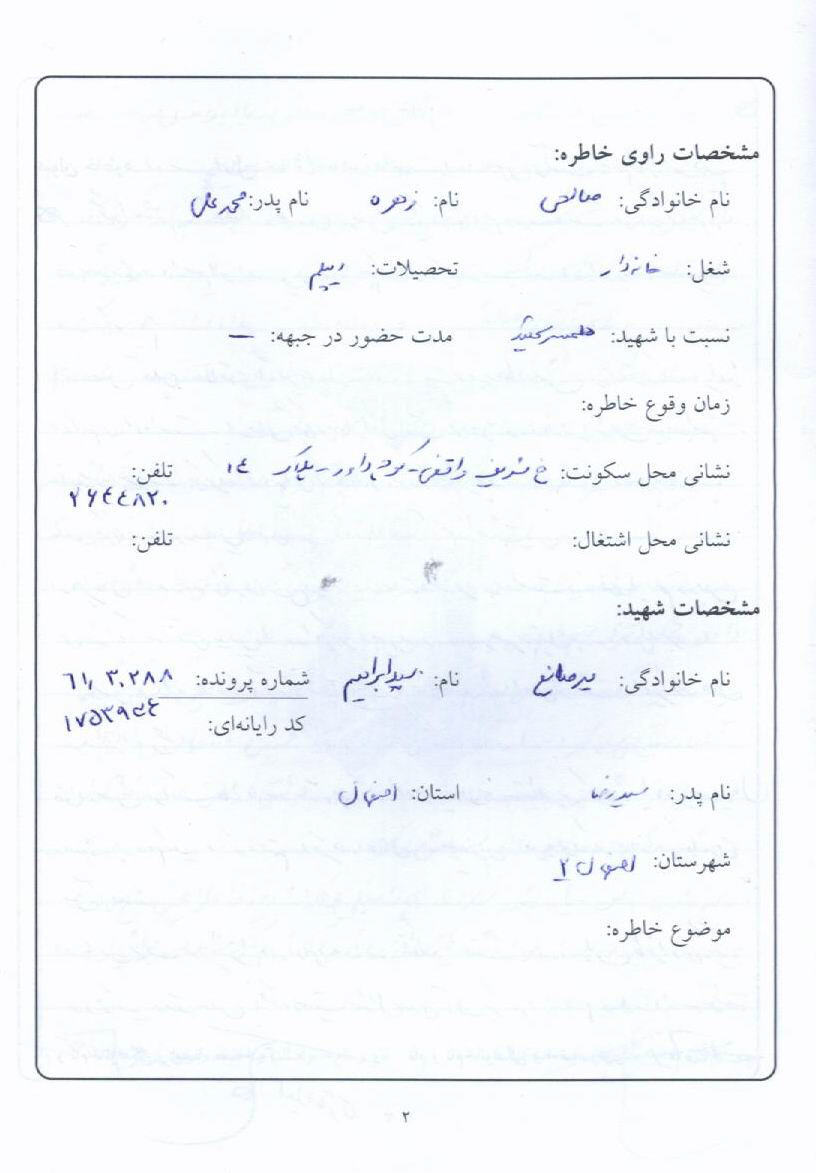 مشخصات راوی خاطره:
نام خانوادگی: صالحی نام: زهره نام پدر: محمدعلی
شغل: خانه‌دار تحصیلات: دیپلم
نسبت با شهید: همسر شهید مدت حضور در جبهه: —
زمان وقوع خاطره:
نشانی محل سکونت: خ شریف واقفی - کوی داور - پلاک ۱٤ تلفن:
۲۶٤٤۸۲۰
نشانی محل اشتغال: تلفن:
مشخصات شهید:
نام خانوادگی: میرصانع نام: سیدابراهیم شماره پرونده: ۶۱،۳۰۲۸۸
کد رایانه‌ای:
نام پدر: سیدرضا استان: اصفهان
شهرستان: اصفهان ۲
موضوع خاطره:
۲